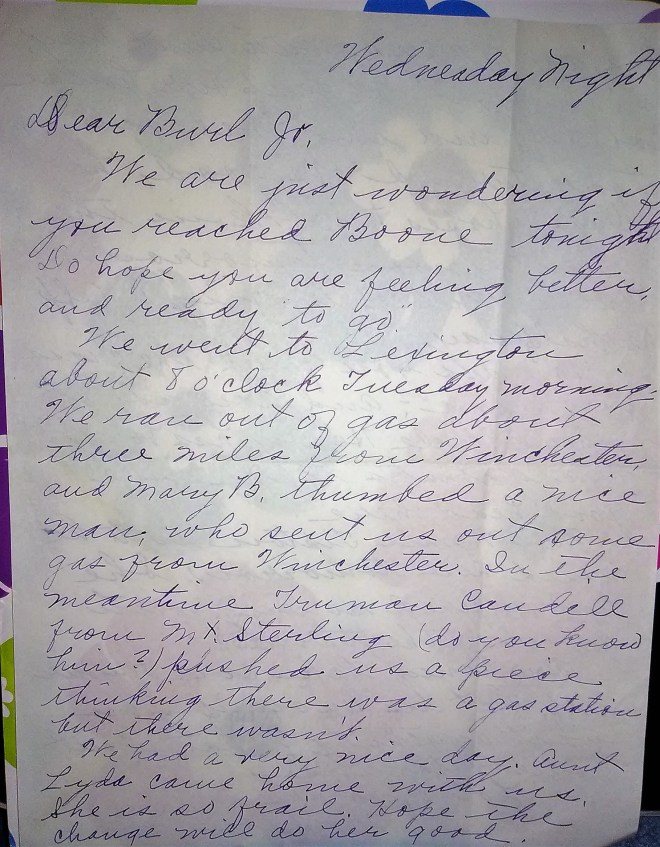 Wednesday Night
Dear Burl Jr.
We are just wondering if
you reached Boone tonight
Do hope you are feeling better,
and ready "to go"
We went to Lexington
about 8 o'clock Tuesday morning.
We ran out of gas about
three miles from Winchester,
and Mary B. thumbed a nice
man, who sent us out some
gas from Winchester. In the
meantime Truman Caudell
from Mt. Sterling (do you know
him?) pushed us a piece
thinking there was a gas station
but there wasn't.
We had a very nice day. Aunt
Lyda came home with us.
She is so frail. Hope the
change will do her good.